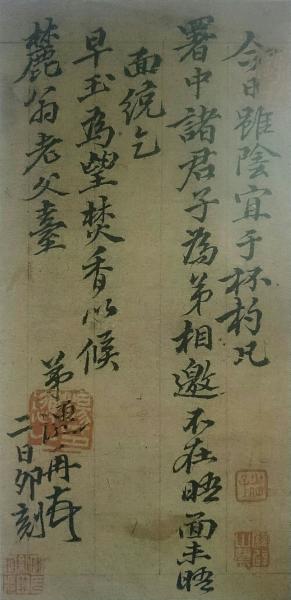 今日雖陰宜于杯杓凡
署中諸君子為弟相邀不在晤面未晤
面統乞
早玉為望焚香以候
麓翁老父臺
弟

二日卯刻